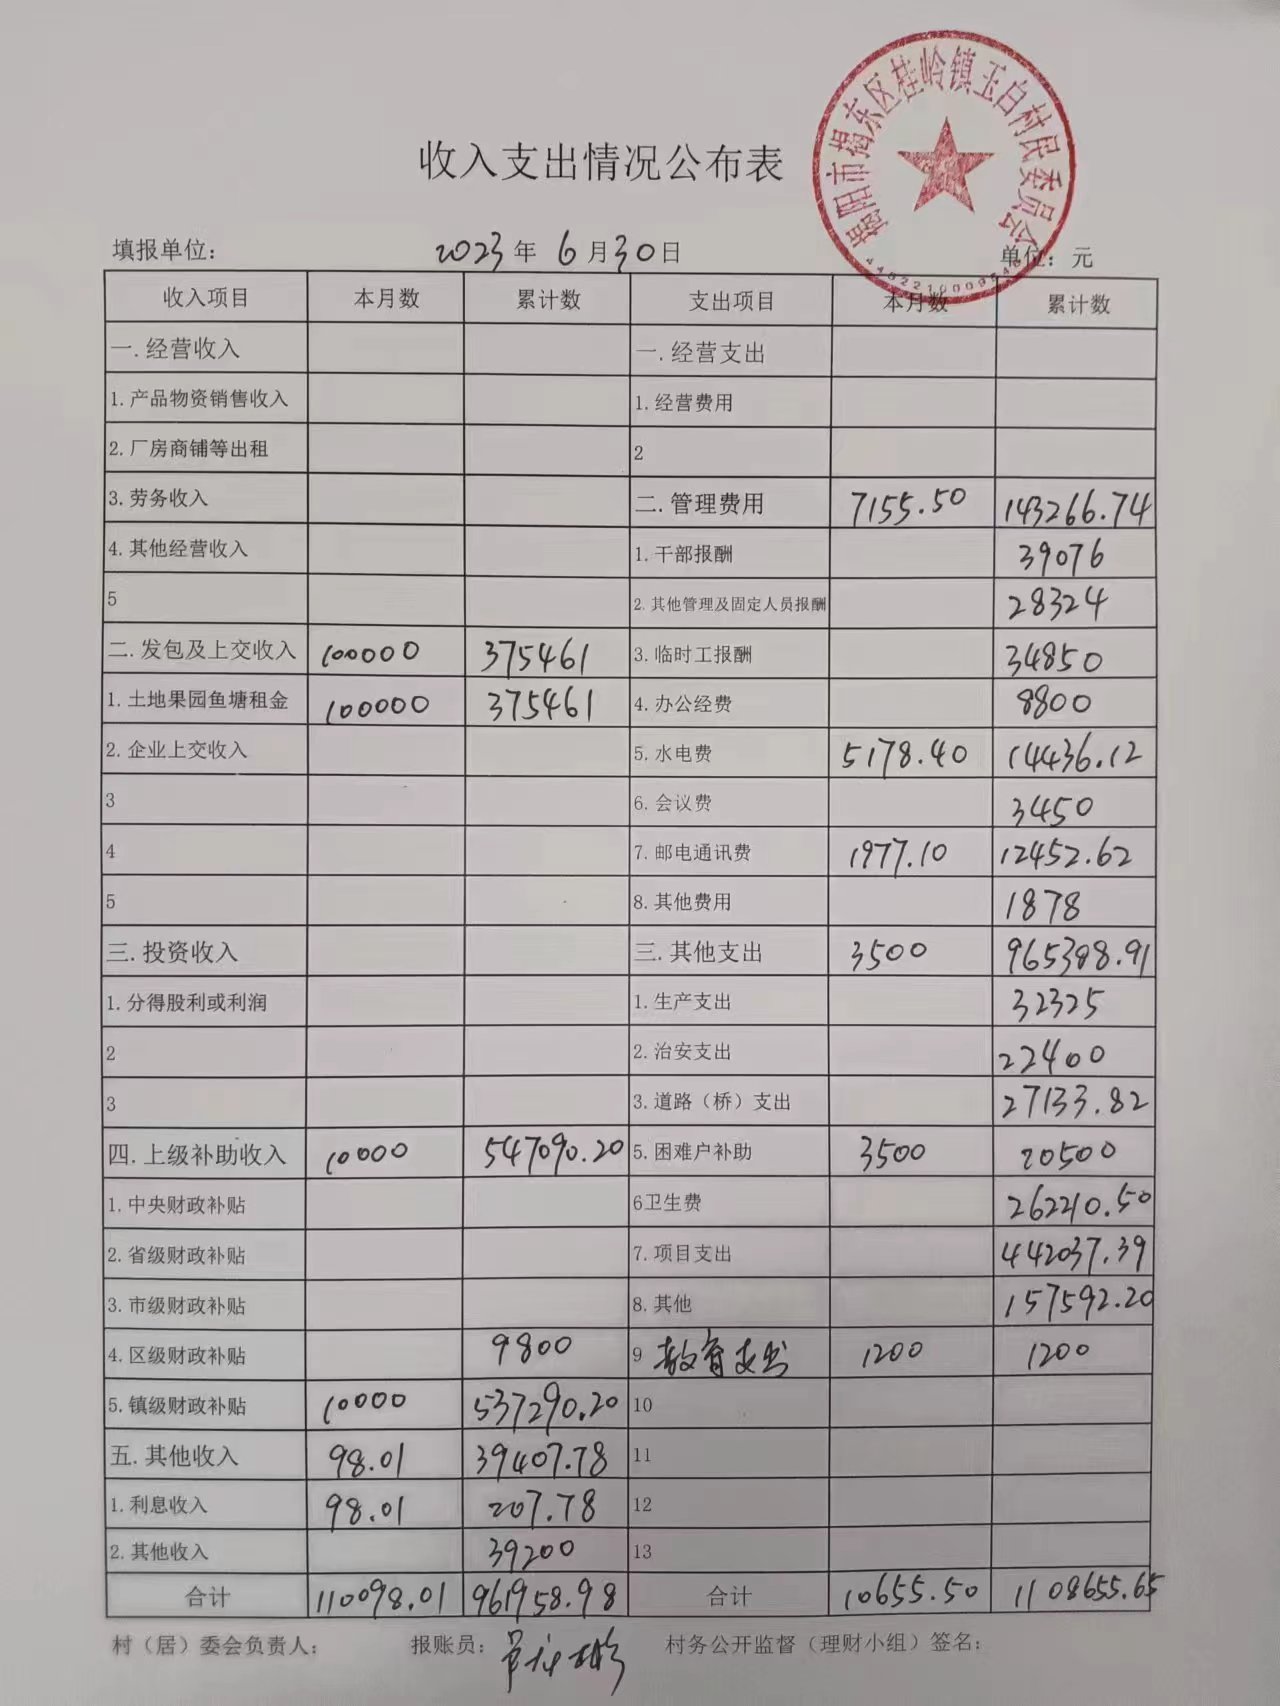 揭阳市揭东区桂岭镇玉白村民委员会
收入支出情况公布表
填报单位： 2023年 6月30日 单位：元
收入项目 本月数 累计数 支出项目 本月数 累计数
一.经营收入 一.经营支出
1.产品物资销售收入 1.经营费用
2.厂房商铺等出租 2
3.劳务收入 二.管理费用 7155.50 143266.74
4.其他经营收入 1.干部报酬 39076
5 2.其他管理及固定人员报酬 28324
二.发包及上交收入 100000 375461 3.临时工报酬 34850
1.土地果园鱼塘租金 100000 375461 4.办公经费 8800
2.企业上交收入 5.水电费 5178.40 14436.12
3 6.会议费 3450
4 7.邮电通讯费 1977.10 12452.62
5 8.其他费用 1878
三.投资收入 三.其他支出 3500 965388.91
1.分得股利或利润 1.生产支出 32325
2 2.治安支出 22400
3 3.道路（桥）支出 27133.82
四.上级补助收入 10000 547090.20 5.困难户补助 3500 20500
1.中央财政补贴 6卫生费 262210.50
2.省级财政补贴 7.项目支出 442037.39
3.市级财政补贴 8.其他 157592.20
4.区级财政补贴 9800 9 教育支出 1200 1200
5.镇级财政补贴 10000 537290.20 10
五.其他收入 98.01 39407.78 11
1.利息收入 98.01 207.78 12
2.其他收入 39200 13
合计 110098.01 961958.98 合计 10655.50 1108655.65
村（居）委会负责人： 报账员： 村务公开监督（理财小组）签名：